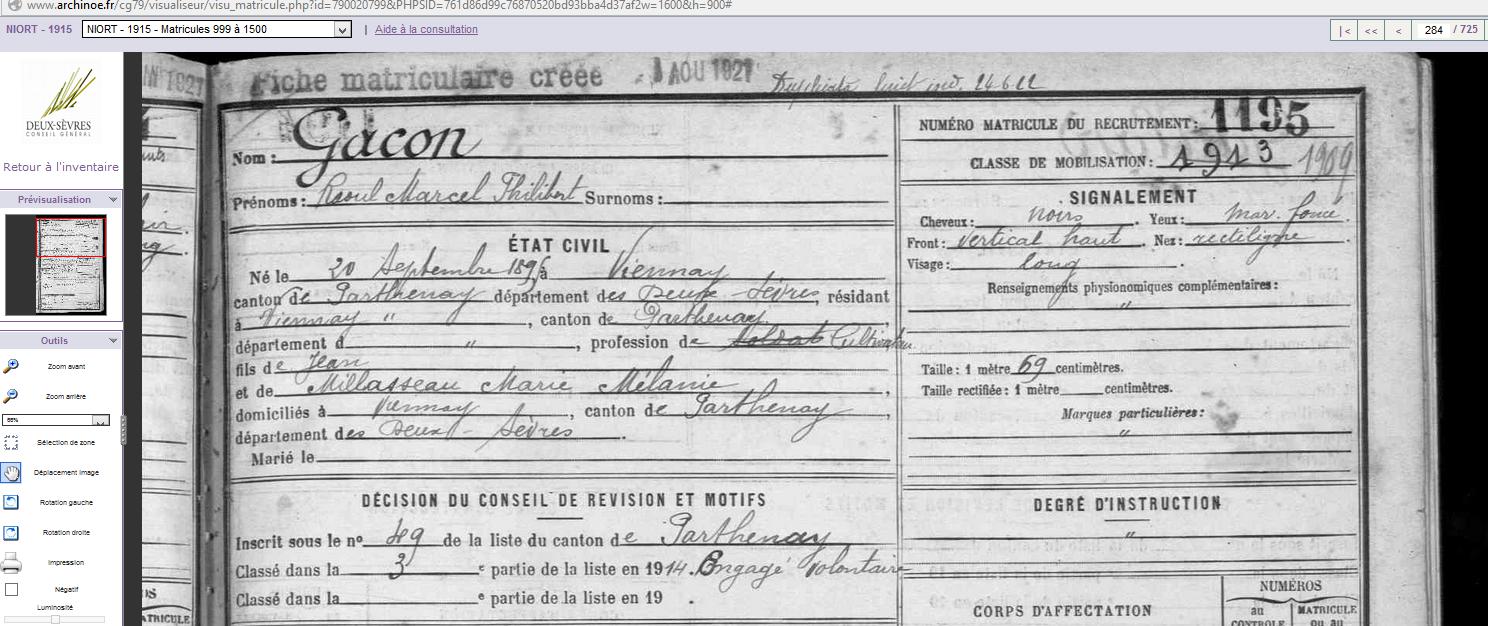 www.archinoe.fr/cg79/visualiseur/visu_matricule.php?id=790020799&PHPSID=761d86d99c76870520bd93bba4d37af2w=1600&h=900#
NIORT - 1915
NIORT - 1915 - Matricules 999 à 1500
| Aide à la consultation
|< << < 284 / 725
DEUX-SÈVRES
CONSEIL GÉNÉRAL
Retour à l'inventaire
Prévisualisation
Outils
Zoom avant
Zoom arrière
Sélection de zone
Déplacement image
Rotation gauche
Rotation droite
Impression
Négatif
Luminosité
1927
Fiche matriculaire créée AOU 1927
24.6.22
Nom : Gacon
Prénoms : Raoul Marcel Philibert Surnoms :
ÉTAT CIVIL
Né le 20 Septembre 1895 à Viennay
canton de Parthenay département des Deux-Sèvres, résidant
à Viennay " , canton de Parthenay,
département d " , profession de Soldat Cultivateur
fils de Jean
et de Millasseau Marie Mélanie
domiciliés à Viennay , canton de Parthenay ,
département des Deux-Sèvres .
Marié le
DÉCISION DU CONSEIL DE REVISION ET MOTIFS
Inscrit sous le nº 49 de la liste du canton de Parthenay
Classé dans la 3 e partie de la liste en 1914. Engagé Volontaire
Classé dans la e partie de la liste en 19 .
NUMÉRO MATRICULE DU RECRUTEMENT : 1195
CLASSE DE MOBILISATION : 1913 1909
SIGNALEMENT
Cheveux : noirs . Yeux : mar. foncé .
Front : vertical haut . Nez : rectiligne .
Visage : long .
Renseignements physionomiques complémentaires :
"
Taille : 1 mètre 69 centimètres.
Taille rectifiée : 1 mètre centimètres.
Marques particulières :
"
DEGRÉ D'INSTRUCTION
"
CORPS D'AFFECTATION
NUMÉROS
au CONTRÔLE
MATRICULE ou au